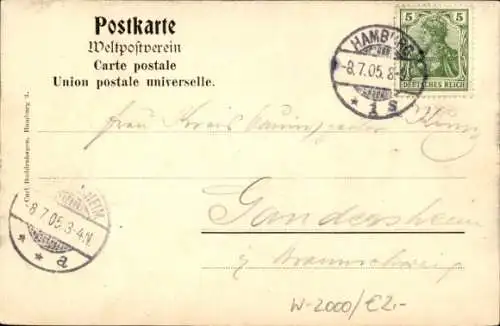 Postkarte
Weltpostverein
Carte postale
Union postale universelle.
HAMBURG
-8.7.05.8-
* 1 S
5 5
DEUTSCHES REICH
Frau Kreis
Gandersheim
Braunschweig
HEIM
-8.7.05.3-4.N.
* * a
Carl Hamburg
W-2000/€2,-